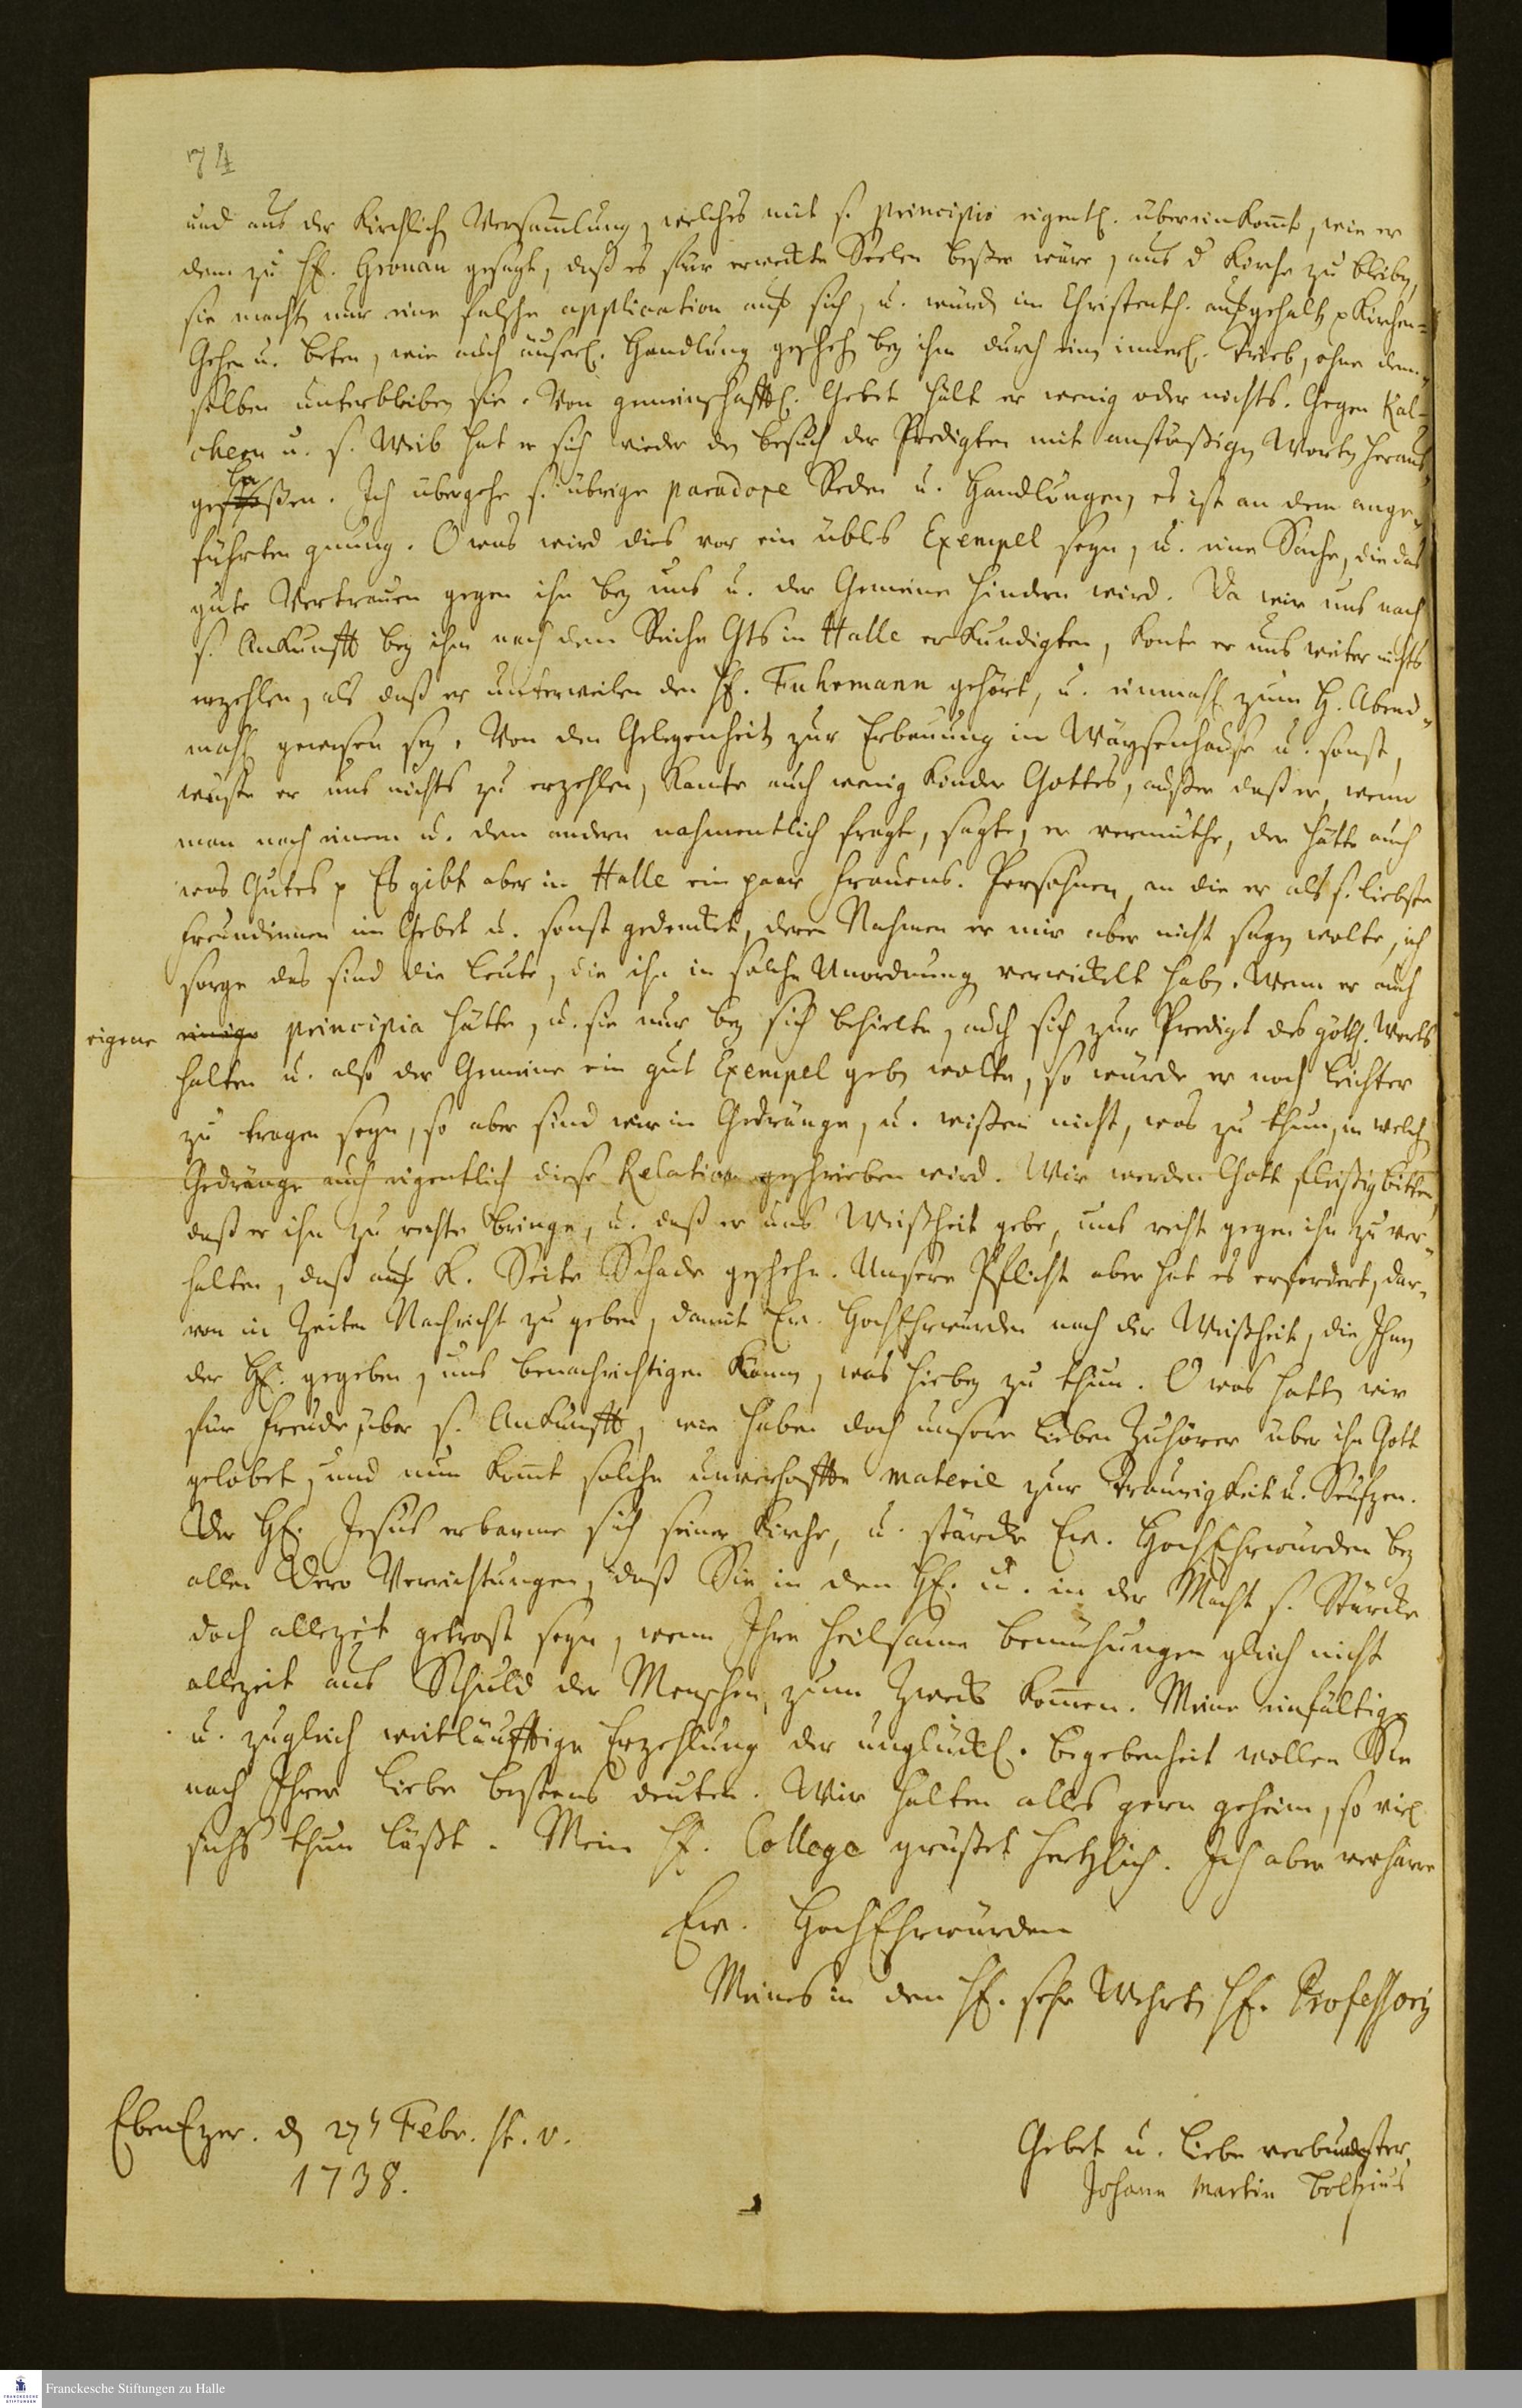 74
und aus der Kirchlich Versam̅lung, welches mit s. principio eigentl. übereinkom̅t, wie er
dem zu H. Gronau gesagt, daß es für erweckte Seelen beßer wäre, aus d Kirche zu bleiben,
sie machten nur eine falsche application auf sich, u. würden im Christenth. aufgehalten p Kirchen-
Gehen u. beten, wie auch äuserl. Handlung geschehen bey ihm durch einen innerl. Trieb, ohne dem-
selben unterbleiben sie. Von gemeinschafftl. Gebet hält er wenig oder nichts. Gegen Kal-
chern u. s. Weib hat er sich wieder den besuch der Predigten mit anstößigen Worten heraus-
gelaßen. Ich übergehe s. übrige paradoxe Reden u. Handlungen, es ist an dem ange-
führten gnung. O was wird dies vor ein übles Exempel seyn, u. eine Sache, die das
gute Vertrauen gegen ihn bey uns u. der Gemeine hindern wird. Da wir uns nach
s. Ankunfft bey ihm nach dem Reiche Gts in Halle erkundigten, konte er uns weiter nichts
erzehlen, als daß er unterweilen den H. Fuhrmann gehört, u. einmahl zum H. Abend-
mahl gewesen sey. Von den Gelegenheiten zur Erbauung in Wäysenhause u. sonst,
wuste er uns nichts zu erzehlen, kante auch wenig Kinder Gottes, außer daß er, wenn
man nach einem u. dem andern nahmentlich fragte, sagte, er vermuthe, der hätte auch
was Gutes p Es gibt aber in Halle ein paar Frauens-Persohnen, an die er als s. liebste
Freundinnen im Gebet u. sonst gedencket, deren Nahmen er mir aber nicht sagen wolte, ich
sorge das sind die Leute, die ihn in solche Unordnung verwickelt haben. Wenn er auch
eigene einige principia hätte, u. sie nur bey sich behielte, auch sich zur Predigt des göttl. Worts
halten u. also der Gemeine ein gut Exempel geben wolte, so würde er noch leichter
zu tragen seyn, so aber sind wir in Gedränge, u. wißen nicht, was zu thun, in welchen
Gedränge auch eigentlich diese Relation geschrieben wird. Wir werden Gott fleißig bitten,
daß er ihn zu rechte bringe, u. daß er uns Weißheit gebe, uns recht gegen ihn zu ver-
halten, daß auf k. Seite Schade geschehe. Unsere Pflicht aber hat es erfordert, dar-
von in Zeiten Nachricht zu geben, damit Ew. HochEhrwürden nach der Weißheit, die Ihnen
der H. gegeben, uns benachrichtigen können, was hiebey zu thun. O was hatten wir
für Freude über s. Ankunfft, wie haben doch unsere lieben Zuhörer über ihn Gott
gelobet, und nun komt solche unverhoffte materie zur Traurigkeit u. Seufzen.
Der H. Jesus erbarme sich seiner Kirche, u. stärcke Ew. HochEhrwürden bey
allen Dero Verrichtungen, daß Sie in dem H. u. in der Macht s. Stärcke
doch allezeit getrost seyn, wenn Ihre heilsame bemühungen gleich nicht
allezeit aus Schuld der Menschen zum Zweck kom̅en. Meine einfältige
u. zugleich weitläufftige Erzehlung der unglückl. begebenheit wollen Sie
nach Ihrer Liebe bestens deuten. Wir halten alles gern geheim, so viel
sichs thun läßt. Mein H. College grüßet hertzlich. Ich aber verharre
Ew. HochEhrwürden
Meines in dem H. sehr Wehrten H. Professoris
EbenEzer. d 27 Febr. st. v.
1738.
Gebet u. Liebe verbundenster
Johann Martin Boltzius
Franckesche Stiftungen zu Halle